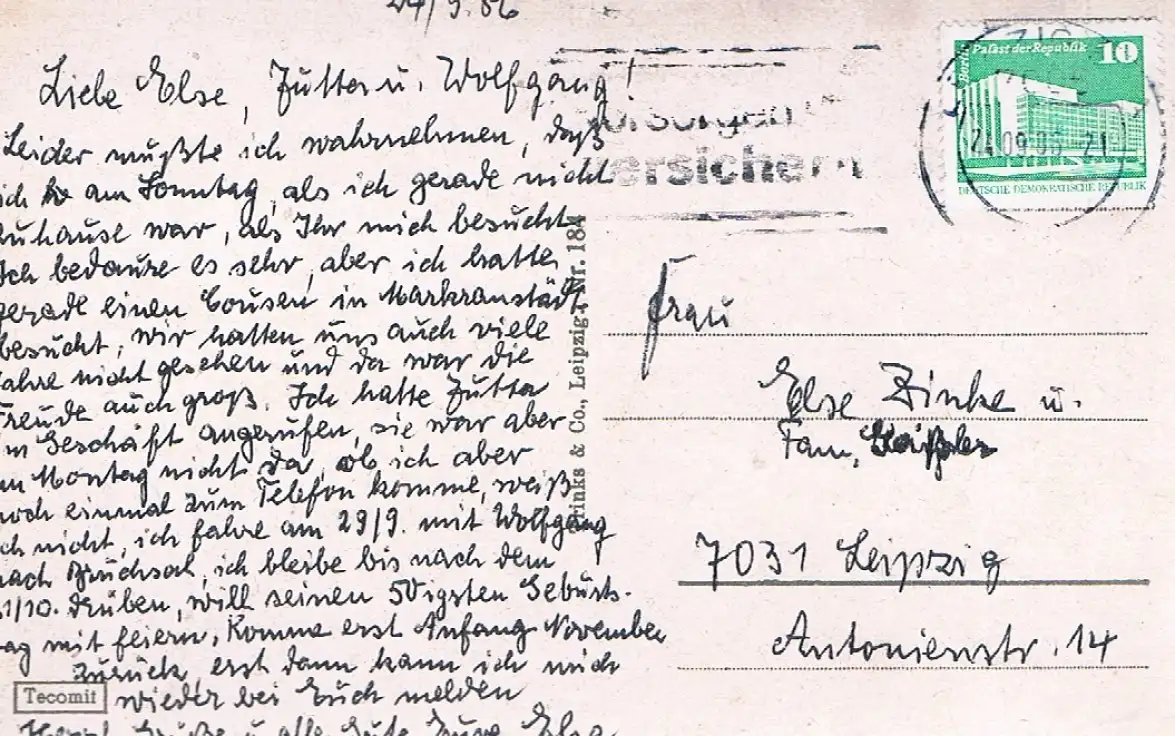 24/9.86
Liebe Else, Jutta u. Wolfgang!
Leider mußte ich wahrnehmen, daß
ich am Sonntag, als ich gerade nicht
zuhause war, als Ihr mich besucht.
Ich bedaure es sehr, aber ich hatte
gerade einen Cousen in Markranstädt
besucht, wir hatten uns auch viele
Jahre nicht gesehen und da war die
Freude auch groß. Ich hatte Jutta
im Geschäft angerufen, sie war aber
am Montag nicht da, ob ich aber
noch einmal zum Telefon komme, weiß
ich nicht, ich fahre am 29/9. mit Wolfgang
nach Bruchsal, ich bleibe bis nach dem
31/10. drüben, will seinen 50igsten Geburts-
tag mit feiern. Komme erst Anfang November
zurück, erst dann kann ich mich
wieder bei Euch melden
Herzl. Grüße u alle Gute Eure Elsa
Tecomit
Hinks & Co., Leipzig, Nr. 184
vorsorgen
versichern
Berlin Palast der Republik 10
24.09.86 21
DEUTSCHE DEMOKRATISCHE REPUBLIK
Frau
Else Zinke u.
Fam.
7031 Leipzig
Antonienstr. 14